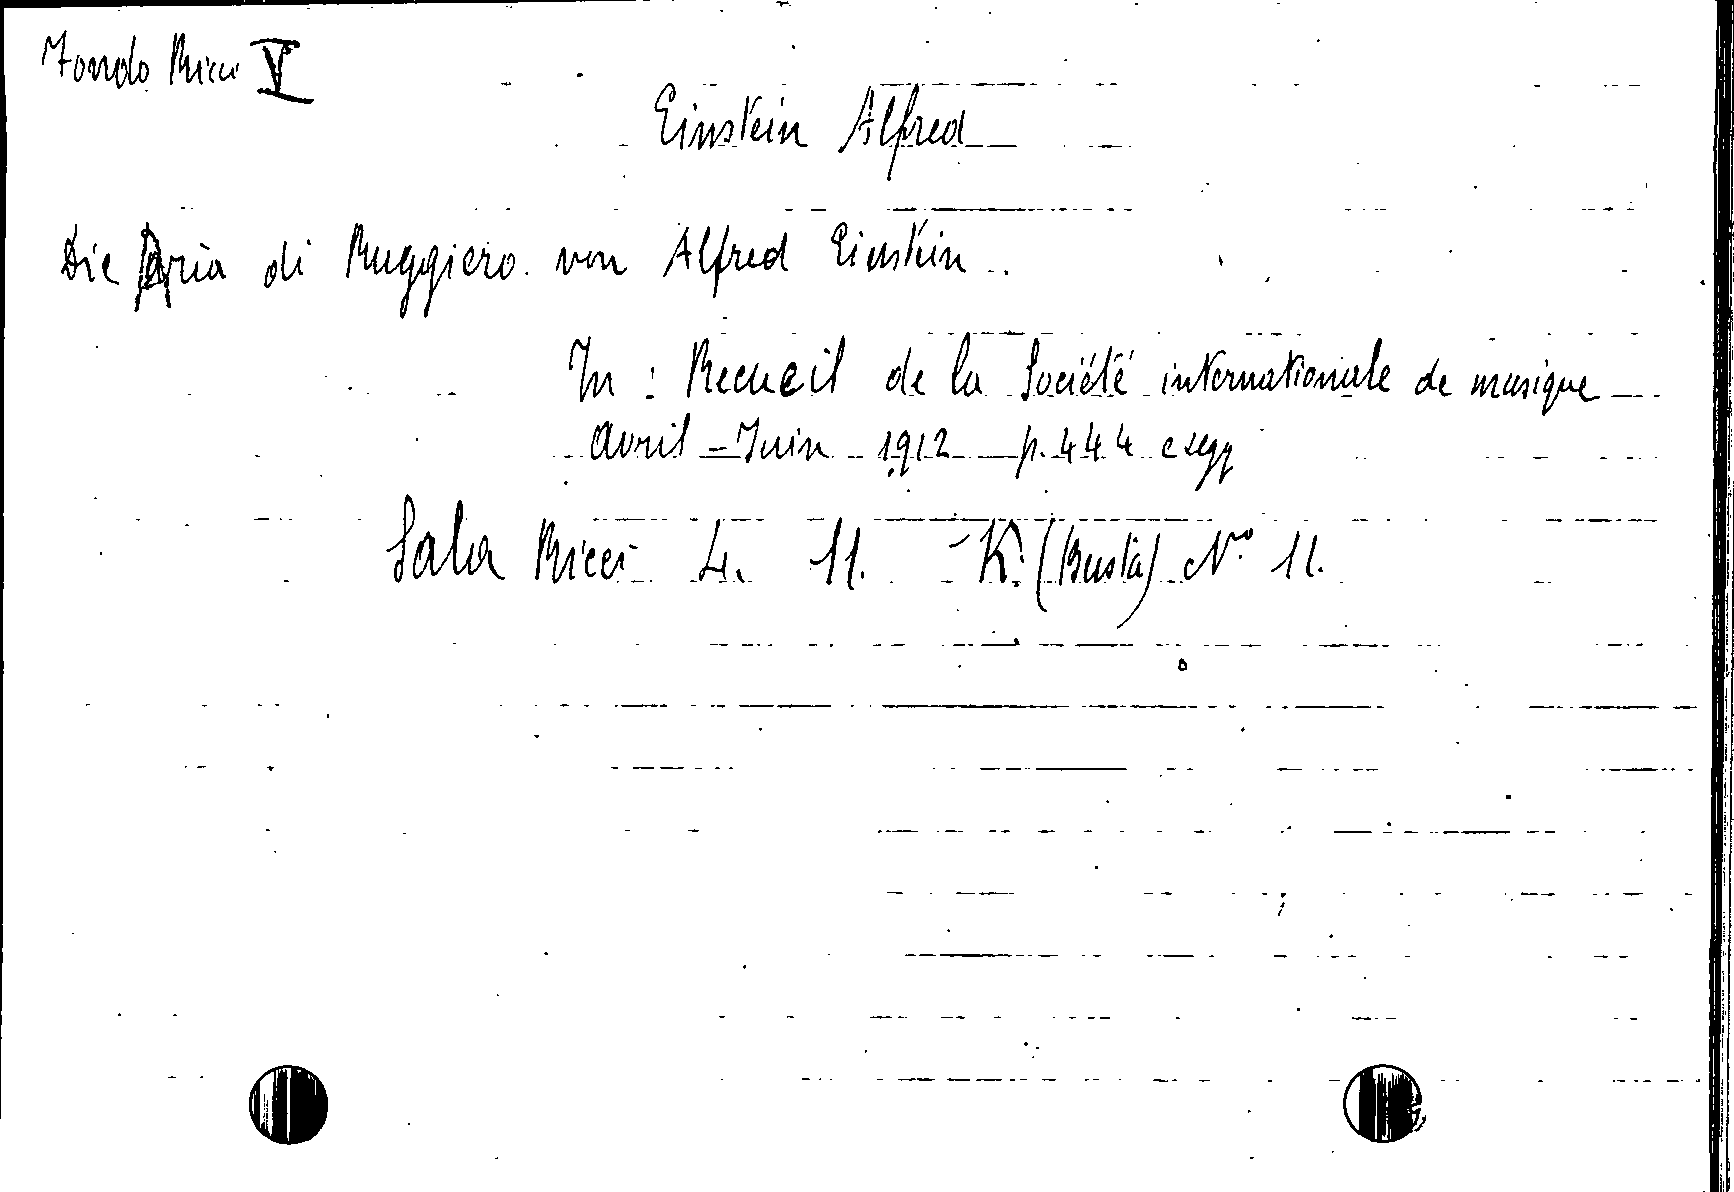 Fondo Ricci V
Einstein Alfred
Die Aria di Ruggiero. von Alfred Einstein.
In : Recueil de la Société internationale de musique
Avril - Juin 1912 p. 444 e segg
Sala Ricci 4. 11. - K. (Busta) N.º 11.